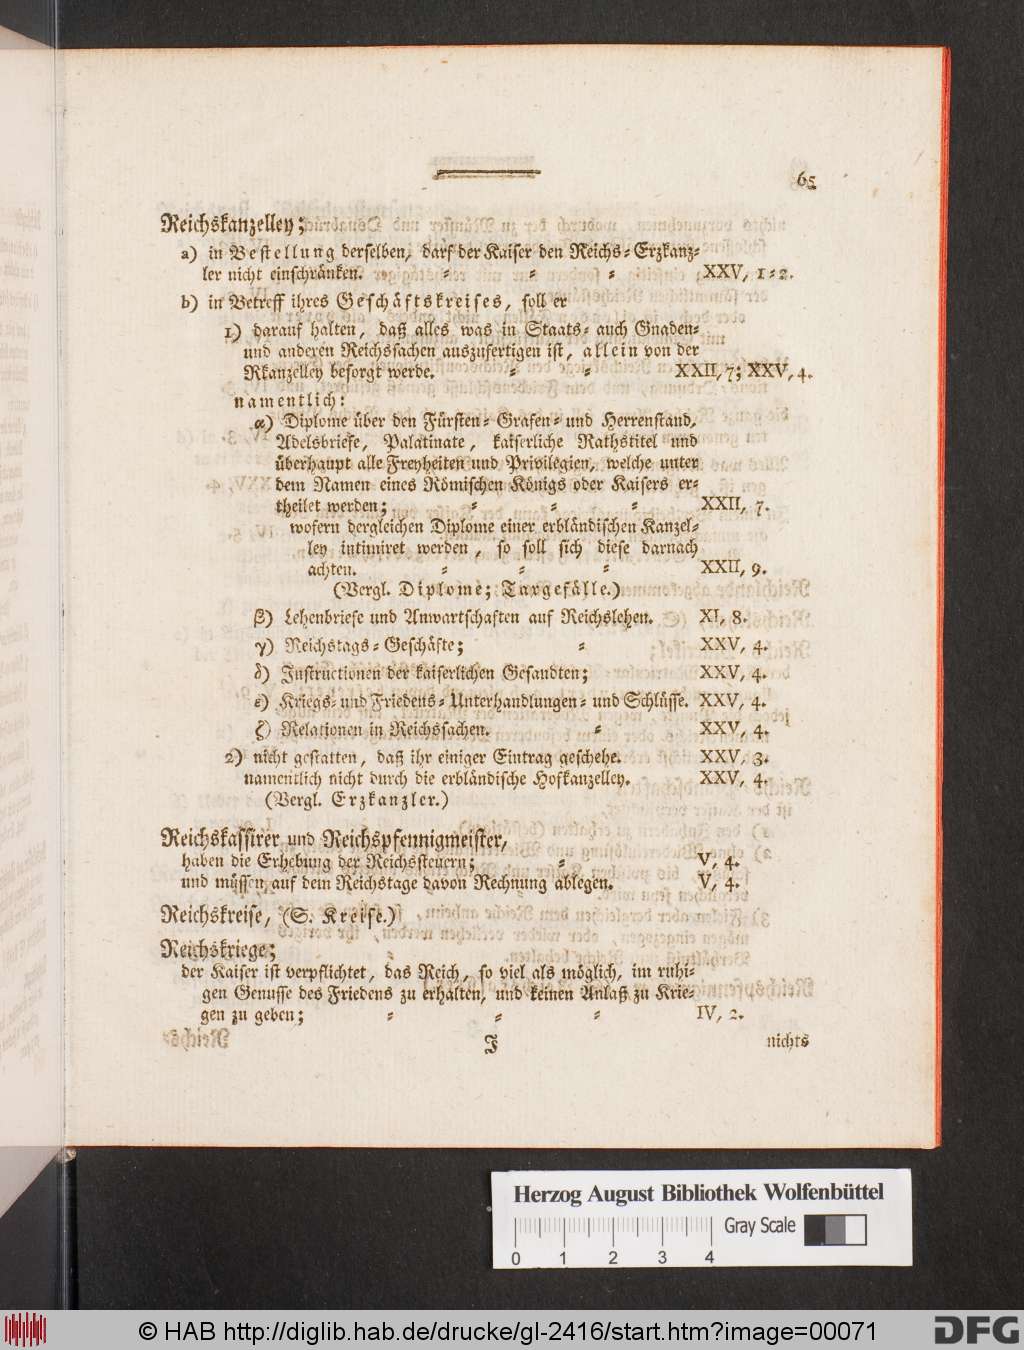 65
Reichskanzelley;
a) in Bestellung derselben, darf der Kaiser den Reichs-Erzkanz-
ler nicht einschränken. - - - XXV, 1-2.
b) in Betreff ihres Geschäftskreises, soll er
1) darauf halten, daß alles was in Staats- auch Gnaden-
und anderen Reichssachen auszufertigen ist, allein von der
Rkanzelley besorgt werde. - - XXII, 7; XXV, 4.
namentlich:
α) Diplome über den Fürsten- Grafen- und Herrenstand,
Adelsbriefe, Palatinate, kaiserliche Rathstitel und
überhaupt alle Freyheiten und Privilegien, welche unter
dem Namen eines Römischen Königs oder Kaisers er-
theilet werden; - - - XXII, 7.
wofern dergleichen Diplome einer erbländischen Kanzel-
ley intimiret werden, so soll sich diese darnach
achten. - - - XXII, 9.
(Vergl. Diplome; Taxgefälle.)
β) Lehenbriefe und Anwartschaften auf Reichslehen. XI, 8.
γ) Reichstags-Geschäfte; - XXV, 4.
δ) Instructionen der kaiserlichen Gesandten; XXV, 4.
ε) Kriegs- und Friedens-Unterhandlungen- und Schlüsse. XXV, 4.
ζ) Relationen in Reichssachen. - XXV, 4.
2) nicht gestatten, daß ihr einiger Eintrag geschehe. XXV, 3.
namentlich nicht durch die erbländische Hofkanzelley. XXV, 4.
(Vergl. Erzkanzler.)
Reichskassirer und Reichspfennigmeister,
haben die Erhebung der Reichssteuern; - V, 4.
und müssen auf dem Reichstage davon Rechnung ablegen. V, 4.
Reichskreise, (S. Kreise.)
Reichskriege;
der Kaiser ist verpflichtet, das Reich, so viel als möglich, im ruhi-
gen Genusse des Friedens zu erhalten, und keinen Anlaß zu Krie-
gen zu geben; - - - IV, 2.
J nichts
Herzog August Bibliothek Wolfenbüttel
Gray Scale
0 1 2 3 4
© HAB http://diglib.hab.de/drucke/gl-2416/start.htm?image=00071
DFG